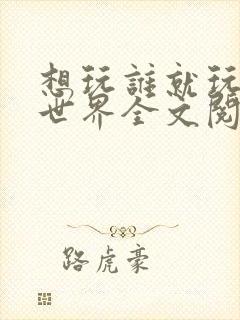 想玩誰就玩
世界全文閱
路虎豪